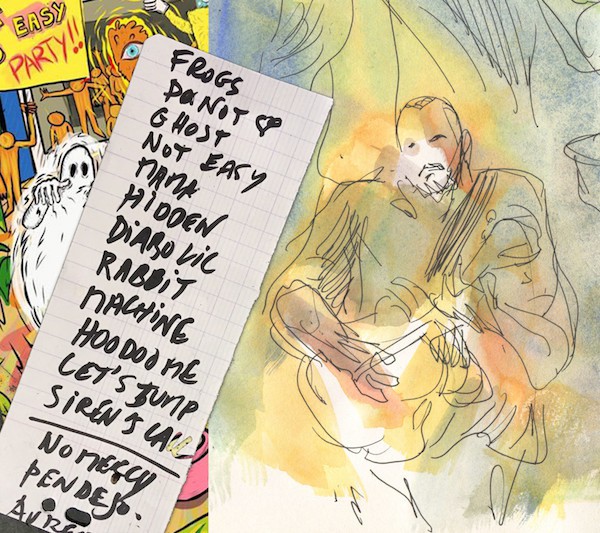 EASY
PARTY!!
FROGS
DO NOT ♡
GHOST
NOT EASY
MAMA
HIDDEN
DIABOLIC
RABBIT
MACHINE
HOODOO ME
LET'S JUMP
SIREN'S
NO MERCY
PENDEJO.